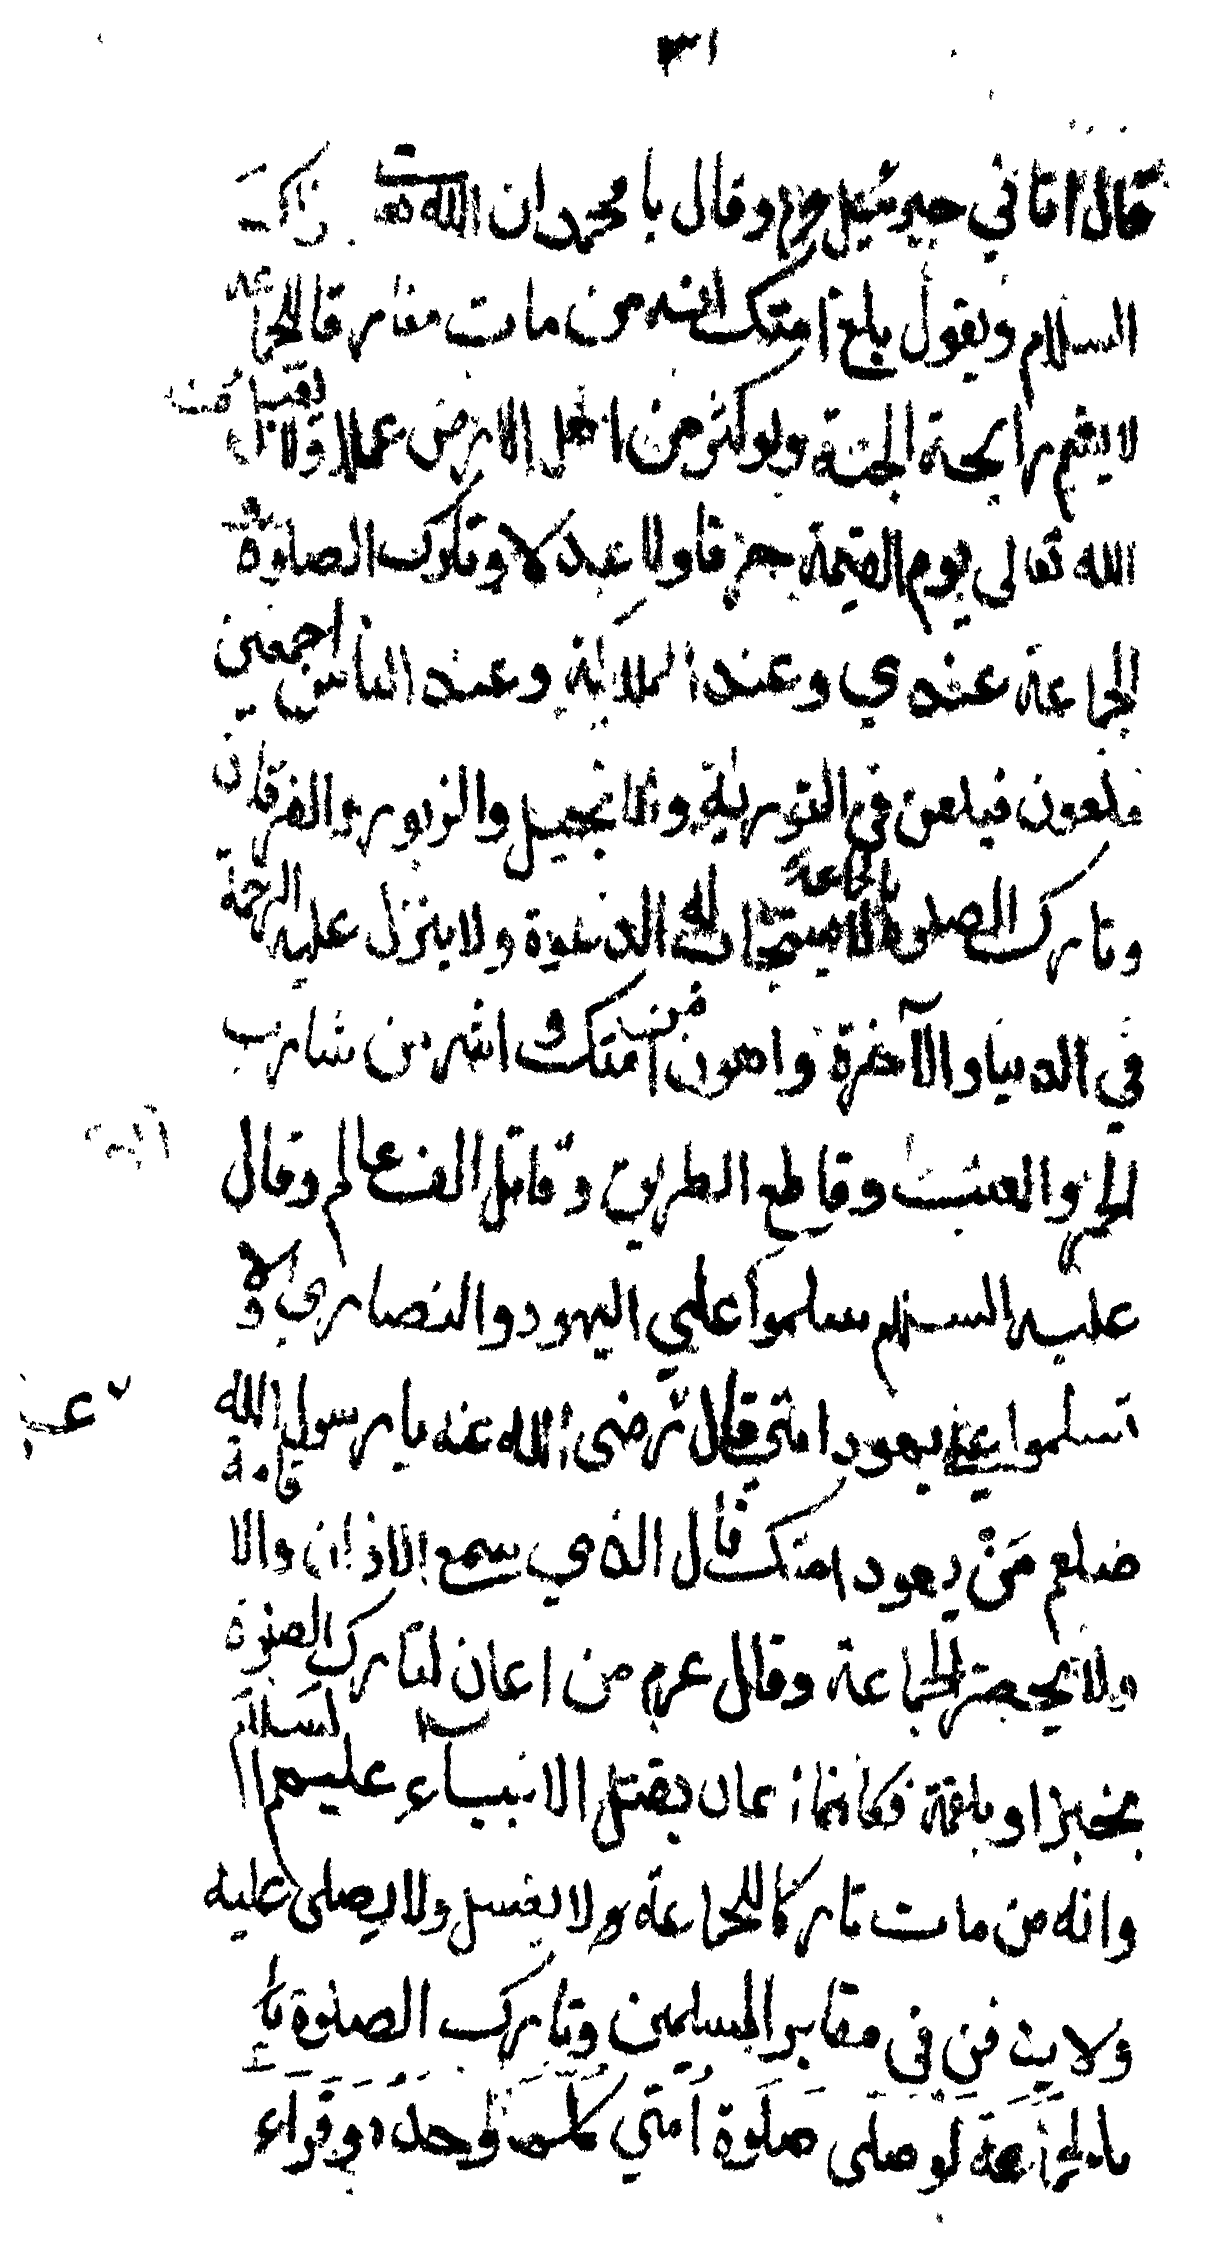 ٣١
قال اتاني جبرئيل عم وقال يا محمد ان الله
السلام ويقول بلغ امتك انه من مات مفارقا للجماعه
لا يشم رايحة الجنة ولو كثر من اهل الارض عملا ولا يقبل من
الله تعالى يوم القيمة صرفا ولا عدلا وتارك الصلوة
الجماعة عندي وعند الملائكة وعند الناس اجمعين
ملعون فيلعن في التورية والانجيل والزبور والفرقان
وتارك الصلوة بالجماعة لا يستجاب له الدعوة ولا ينزل عليه الرحمة
في الدنيا والآخرة واهون من امتك و اشر من شارب
الخمر و وقاطع الطريق وقاتل الف عالم وقال
عليه السلام سلموا علي اليهود والنصاري ولا
تسلموا علي يهود امتي قال رضى الله عنه يا رسول الله
صلعم مَنْ يهود امتك قال الذي سمع الاذان والاقامة
ولا يحضر الجماعة وقال عم من اعان لتارك الصلوة
بخبز او بلقمة فكانما اعان بقتل الانبيآء عليهم السلام
وانه من مات تاركا للجماعة ولا يغسل ولا يصلى عليه
ولا يدفن في مقابر المسلمين وتارك الصلوة
بالجماعة لو صلى صلوة امتي كلهم وحده وقراء